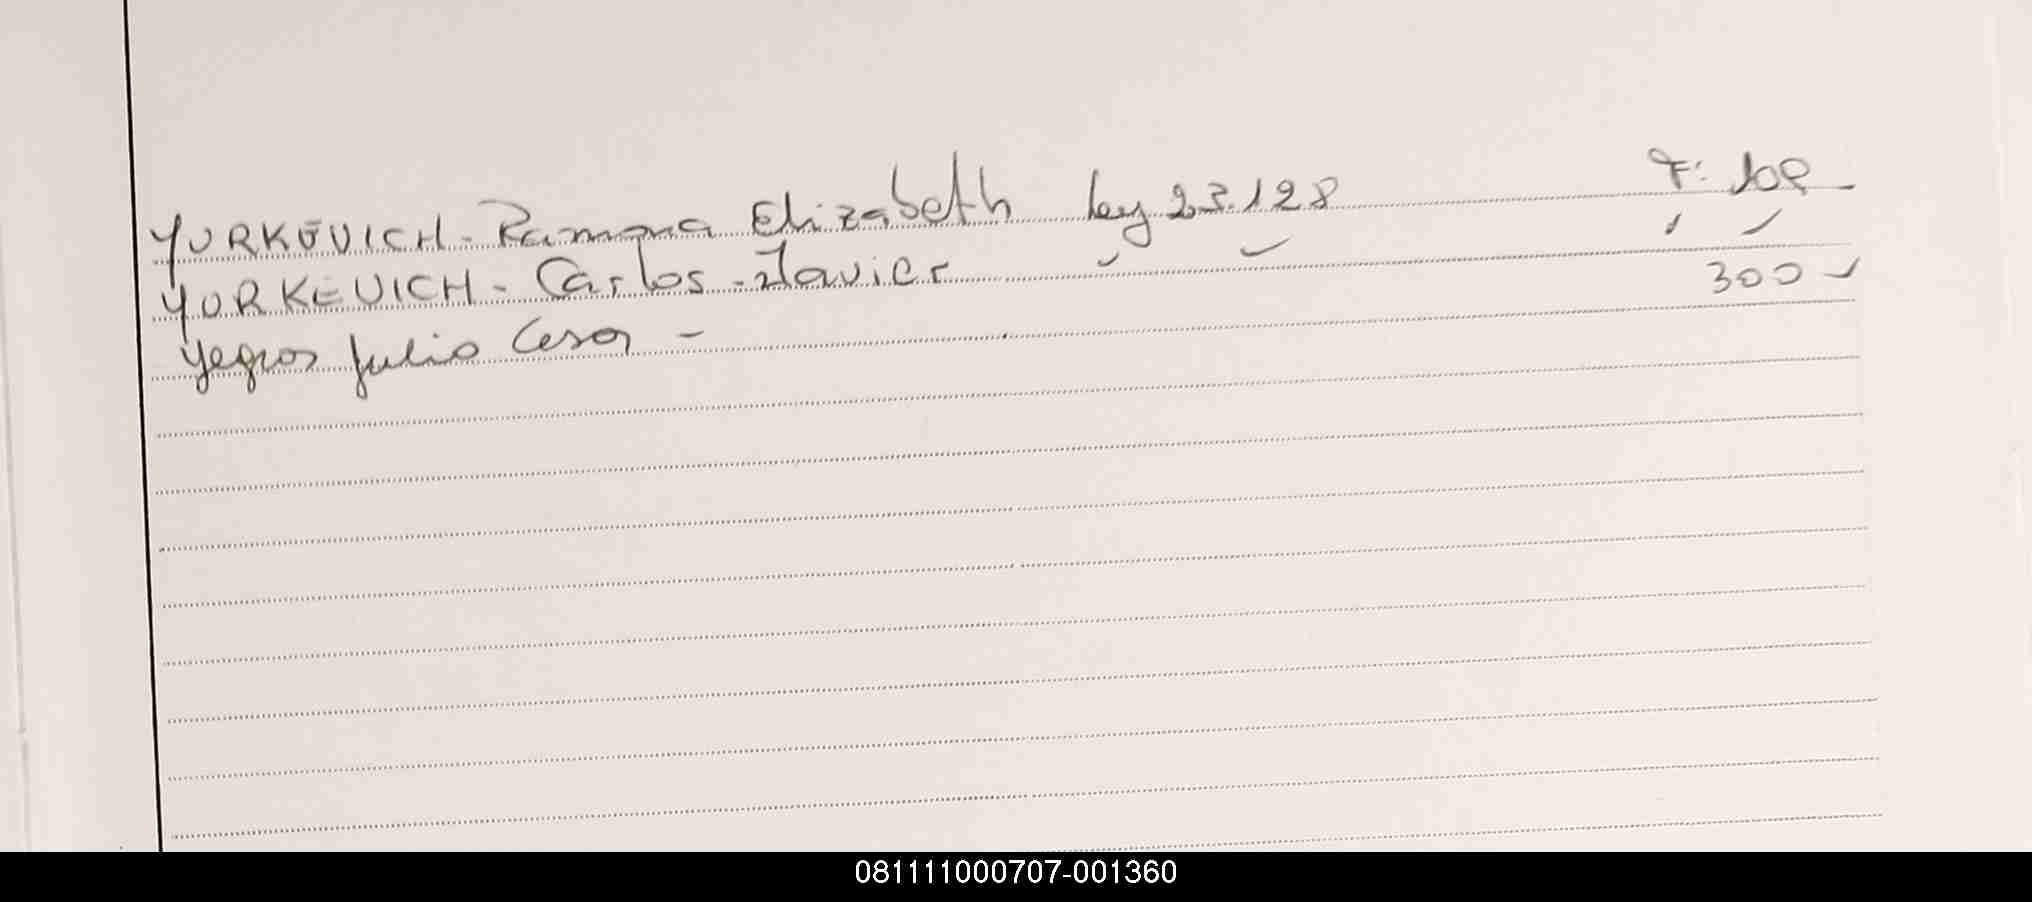 YURKEVICH - Ramona Elizabeth ley 23.128 F: 108
YURKEVICH - Carlos - Javier
Yegros Julio Cesar - 300
081111000707-001360